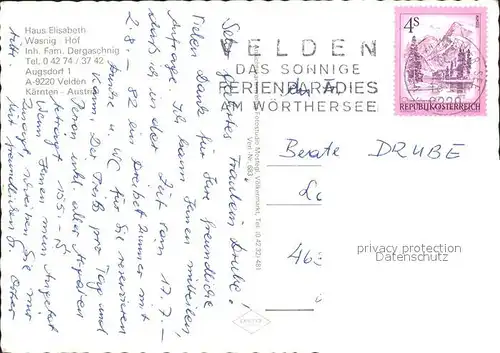 Haus Elisabeth
Wasnig Hof
Inh. Fam. Dergaschnig
Tel. 0 42 74 / 37 42
Augsdorf 1
A-9220 Velden
Kärnten - Austria
VELDEN
DAS SONNIGE
FERIENPARADIES
AM WÖRTHERSEE
4S
REPUBLIK ÖSTERREICH
Sehr geehrtes Fräulein Drube!
Vielen Dank für Ihre freundliche
Anfrage. Ich kann Ihnen mitteilen,
daß ich in der Zeit vom 17.7.-
2.8.-82 ein Zimmer mit
Dusche u. WC für Sie reservieren
kann. Der Preis pro Tag und
Person inkl. aller Abgaben
beträgt 185.- ÖS
Wenn Ihnen mein Angebot
zusagt, rufen Sie mir
Mit freundlichen Grüßen
Beate DRUBE
463
privacy protection
watermark